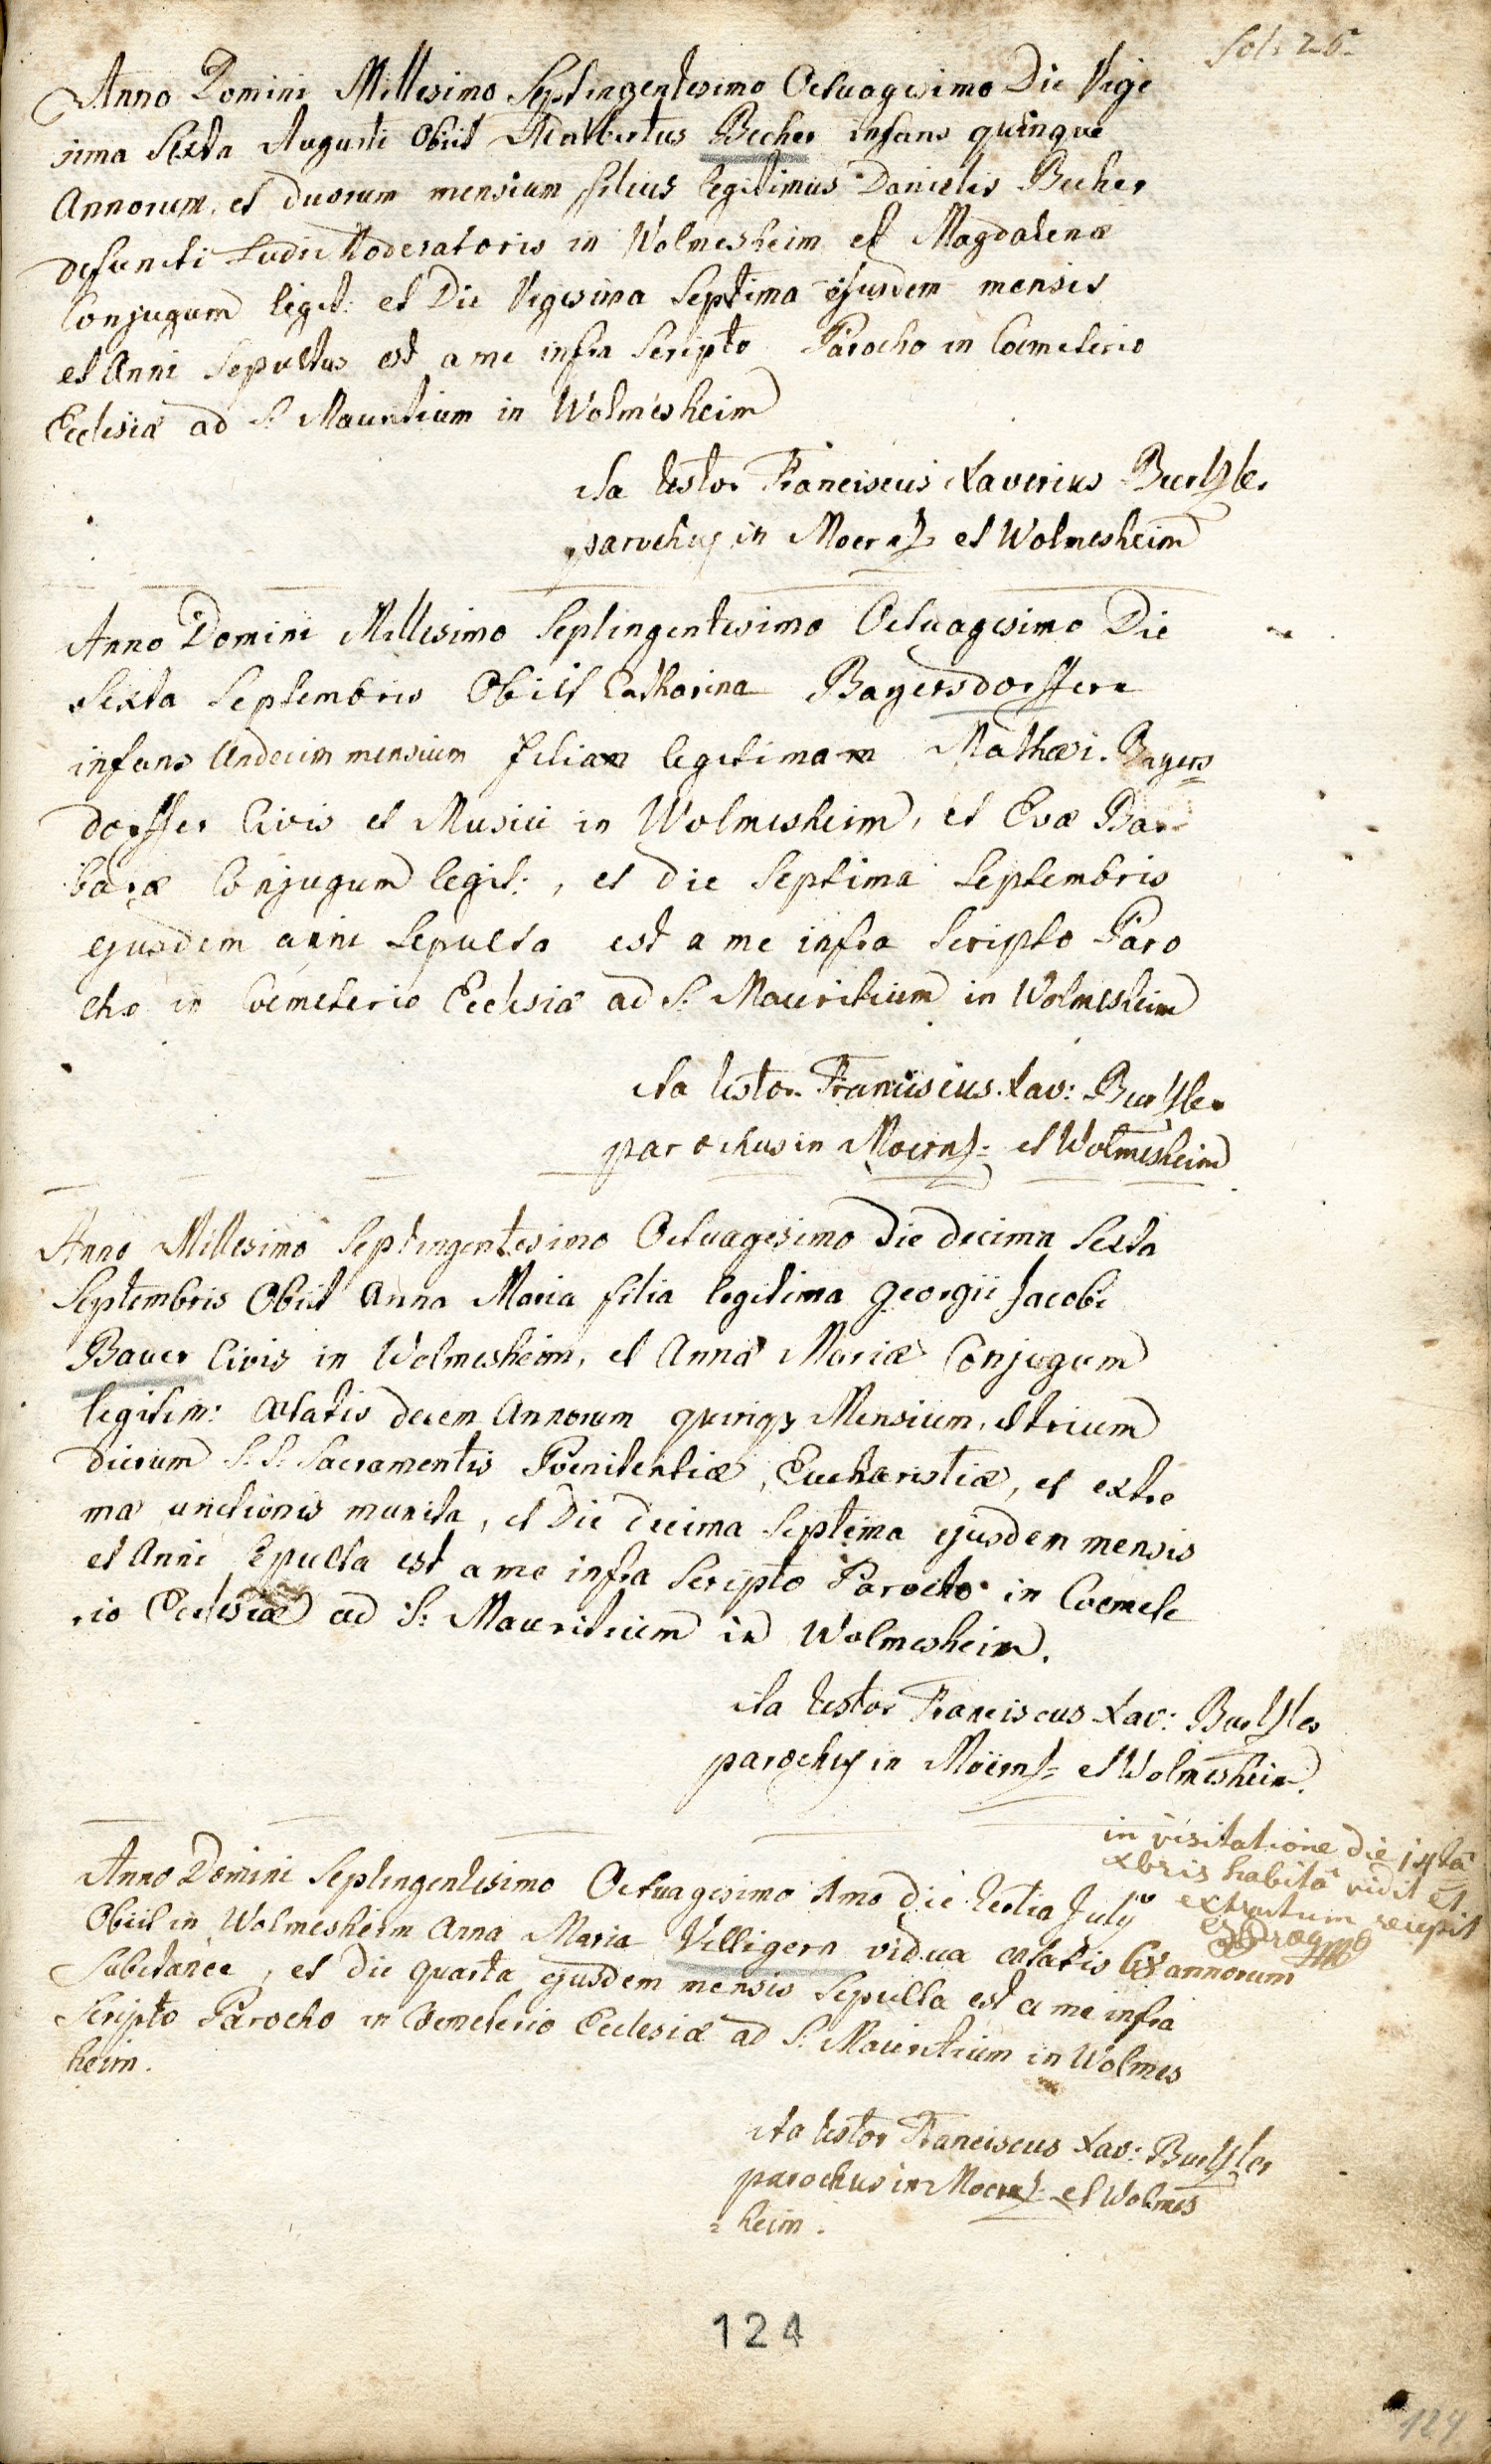 fol: 26
Anno Domini Millesimo Septingentesimo Octuagesimo Die Vige
sima Sexta Augusti Obiit Adalbertus Becher infans quinque
Annorum, et duorum mensium filius legitimus Danielis Becher
defuncti Ludi Moderatoris in Wolmesheim et Magdalenæ
Conjugum legit: et Die Vigesima Septima ejusdem mensis
et Anni Sepultus est a me infra Scripto Parocho in Coemeterio
Ecclesiæ ad S. Mauritium in Wolmesheim
Ita testor Franciscus Xaverius
parochus in et Wolmesheim
Anno Domini Millesimo Septingentesimo Octuagesimo Die
Sexta Septembris Obiit Catharina Bayersdorffere
infans Undecim mensium filiam legitimam Mathæi Bayers=
dorffer Civis et Musici in Wolmesheim, et Evæ Bar
baræ Conjugum legit:, et die Septima Septembris
ejusdem anni Sepulta est a me infra Scripto Paro
cho in Coemeterio Ecclesiæ ad S. Mauritium in Wolmesheim
Ita testor Franciscus Xav:
parochus in et Wolmesheim
Anno Millesimo Septingentesimo Octuagesimo Die decima Sexta
Septembris Obiit Anna Maria filia legitima Georgii Jacobi
Bauer Civis in Wolmesheim, et Annæ Mariæ Conjugum
legitim: Ætatis decem Annorum quinqz Mensium, et trium
dierum S. S. Sacramentis Poenitentiæ, Eucharistiæ, et extre
mæ unctionis munita, et Die decima Septima ejusdem mensis
et Anni Sepulta est a me infra Scripto Parocho in Coemete
rio Ecclesiæ ad S: Mauritium in Wolmesheim.
Ita testor Franciscus Xav:
parochus in et Wolmesheim.
in visitatione die 14tâ
xbris habitâ vidit et
extractum recepit
Anno Domini Septingentesimo Octuagesimo 1mo die tertia July
Obiit in Wolmesheim Anna Maria Villigern vidua ætatis annorum
Subitanee, et die quarta ejusdem mensis Sepulta est a me infra
Scripto Parocho in Coemeterio Ecclesiæ ad S. Mauritium in Wolmes
heim.
Ita testor Franciscus Xav:
parochus in et Wolmes
=heim.
124
124